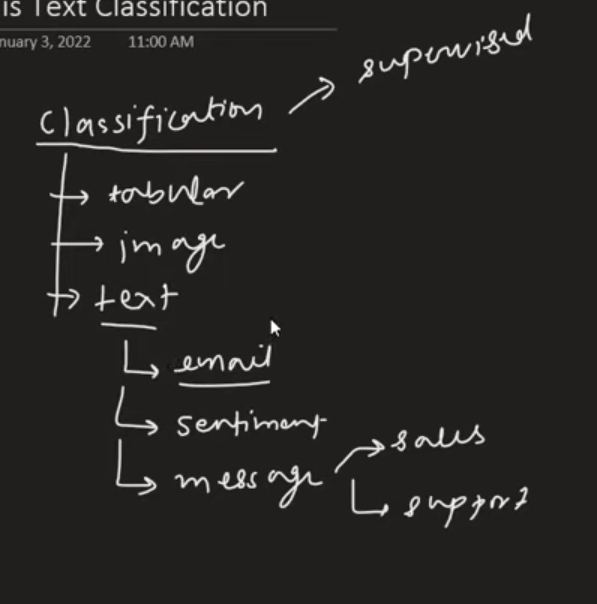 is Text Classification
nuary 3, 2022 11:00 AM
supervised
Classification
tabular
image
text
email
sentiment
message
sales
support